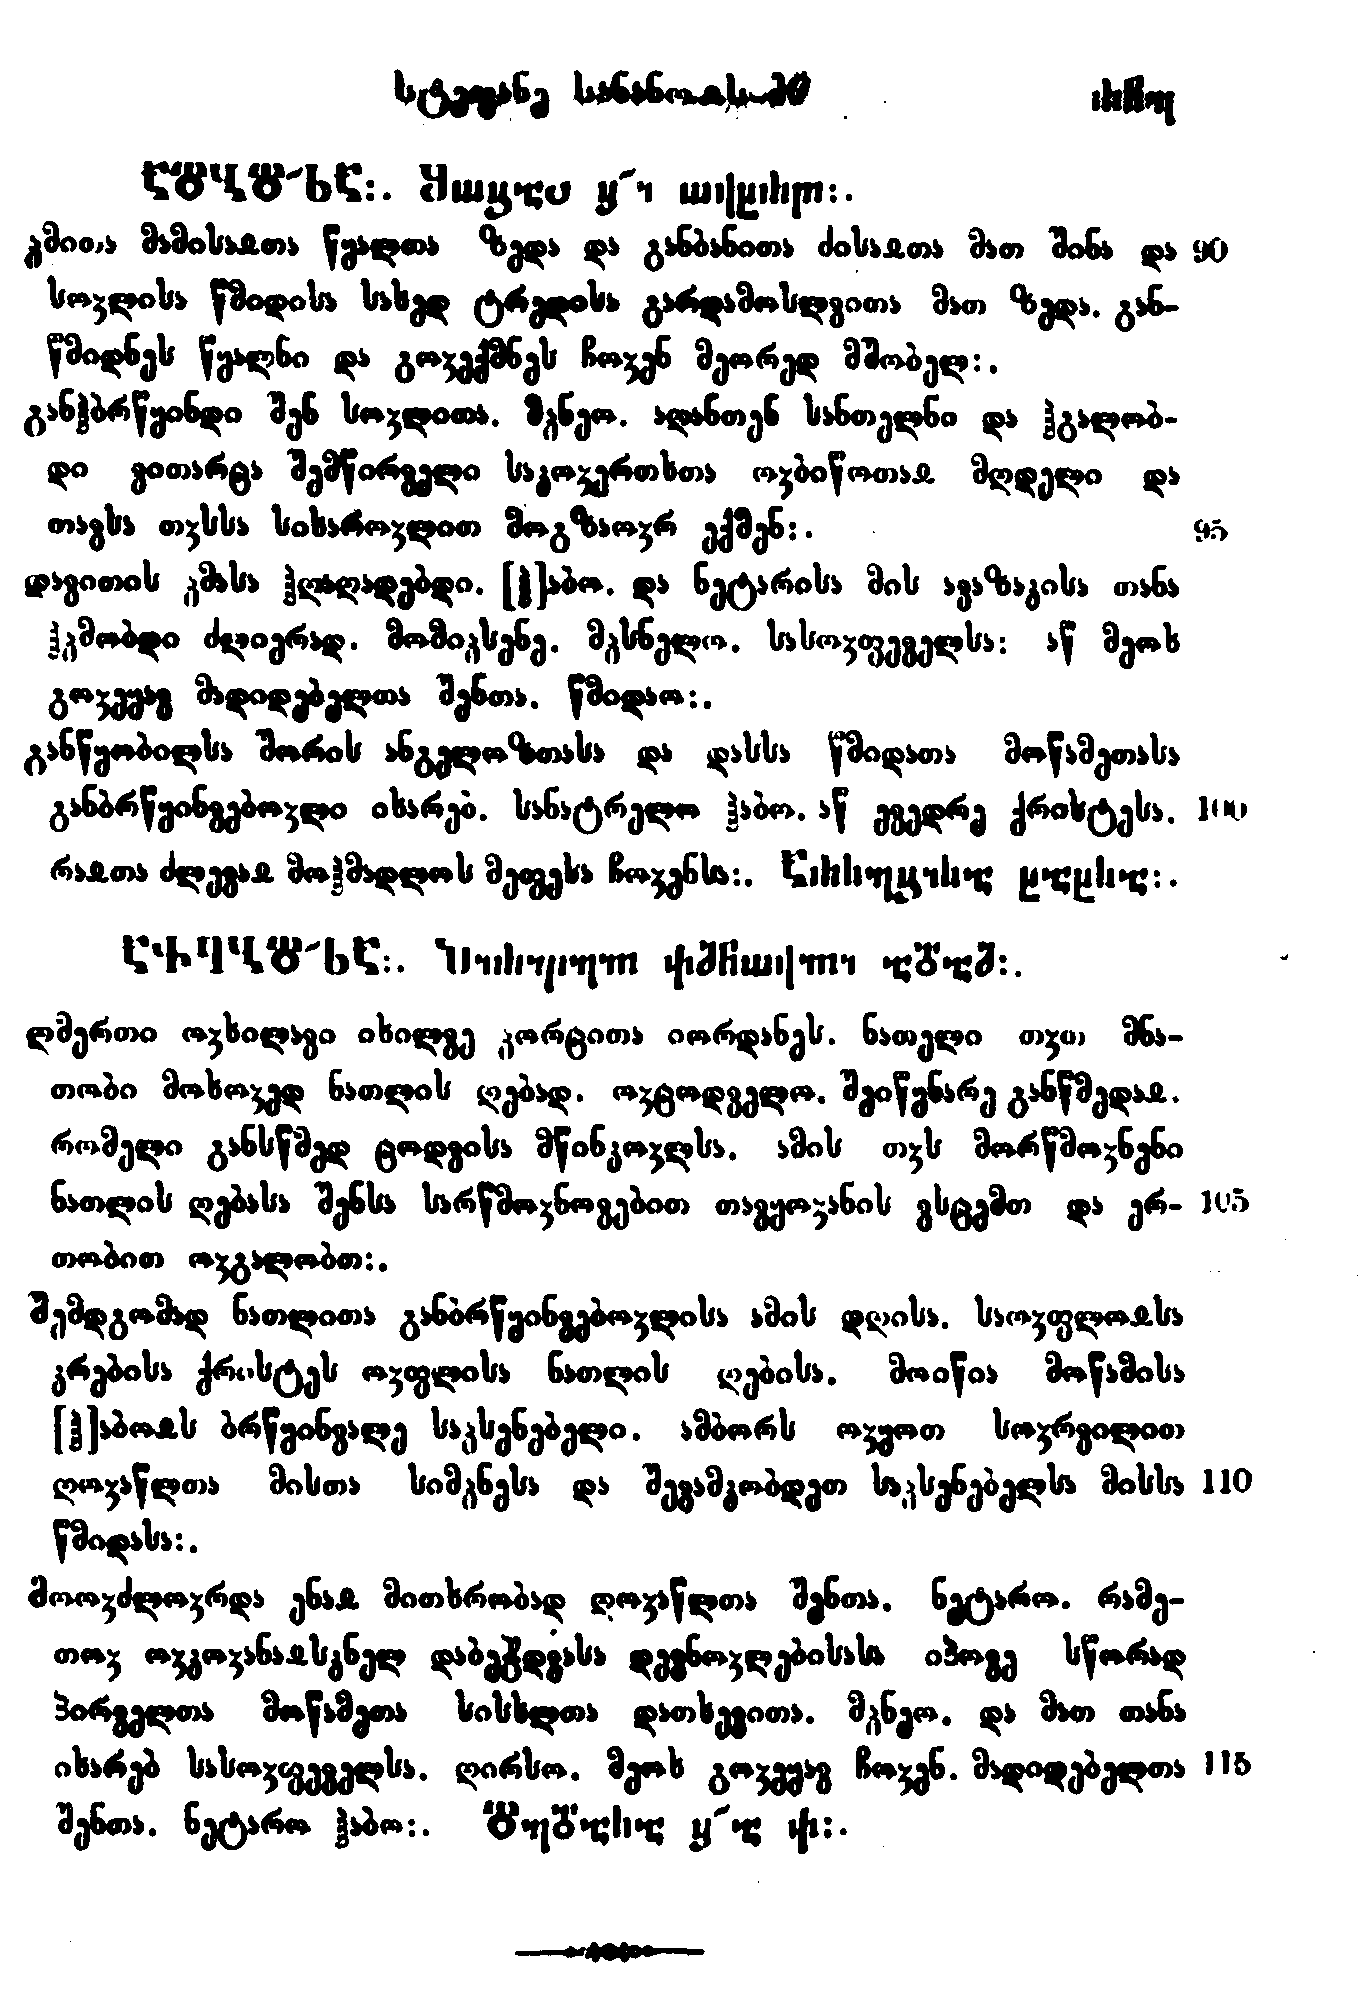 სტეფანე სანანოჲსძე
ჴმითა მამისაჲთა წყალთა ზედა და განბანითა ძისაჲთა მათ შინა და 90
სოჳლისა წმიდისა სახედ ტრედისა გარდამოსლვითა მათ ზედა. გან-
წმიდნეს წყალნი და გოჳექმნეს ჩოჳენ მეორედ მშობელ:.
განჰბრწყინდი შენ სოჳლითა. მჴნეო. აღანთენ სანთელნი და ჰგალობ-
დი ვითარცა შემწირველი საკოჳერთხთა ოჳბიწოთაჲ მღდელი და
თავსა თჳსსა სიხაროჳლით მოგზაოჳრ ექმენ:. 95
დავითის ჴმასა ჰღაღადებდი. [ჰ]აბო. და ნეტარისა მის ავაზაკისა თანა
ჰჴმობდი ძლიერად. მომიჴსენე. მჴსნელო. სასოჳფეველსა: აწ მეოხ
გოჳეყავ მადიდებელთა შენთა. წმიდაო:.
განწყობილსა შორის ანგელოზთასა და დასსა წმიდათა მოწამეთასა
განბრწყინვებოჳლი იხარებ. სანატრელო ჰაბო. აწ ევედრე ქრისტესა. 100
რაჲთა ძლევაჲ მოჰმადლოს მეფესა ჩოჳენსა:.
ღმერთი ოჳხილავი იხილვე ჴორცითა იორდანეს. ნათელი თჳთ მნა-
თობი მოხოჳედ ნათლის ღებად. ოჳცოდველო. შეიწყნარე განწმედაჲ.
რომელი განსწმედ ცოდვისა მწინკოჳლსა. ამის თჳს მორწმოჳნენი
ნათლის ღებასა შენსა სარწმოჳნოვებით თავყოჳანის ვსცემთ და ერ- 105
თობით ოჳგალობთ:.
შემდგომად ნათლითა განბრწყინვებოჳლისა ამის დღისა. საოჳფლოჲსა
კრებისა ქრისტეს ოჳფლისა ნათლის ღებისა. მოიწია მოწამისა
[ჰ]აბოჲს ბრწყინვალე საჴსენებელი. ამბორს ოჳყოთ სოჳრვილით
ღოჳაწლთა მისთა სიმჴნესა და შევამკობდეთ საჴსენებელსა მისსა 110
წმიდასა:.
მოოჳძლოჳრდა ენაჲ მითხრობად ღოჳაწლთა შენთა. ნეტარო. რამე-
თოჳ ოჳკოჳანაჲსკნელ დაბეჭდვასა დევნოჳლებისასა იპოვე სწორად
პირველთა მოწამეთა სისხლთა დათხევითა. მჴნეო. და მათ თანა
იხარებ სასოჳფეველსა. ღირსო. მეოხ გოჳეყავ ჩოჳენ. მადიდებელთა 115
შენთა. ნეტარო ჰაბო:.